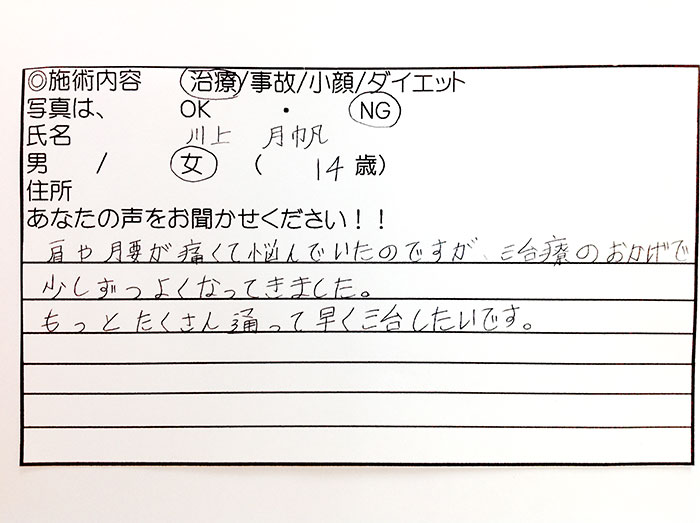 ◎施術内容 治療/事故/小顔/ダイエット
写真は、 OK ・ NG
氏名 川上 月帆
男 / 女 ( 14 歳)
住所
あなたの声をお聞かせください！！
肩や腰が痛くて悩んでいたのですが、治療のおかげで
少しずつよくなってきました。
もっとたくさん通って早く治したいです。